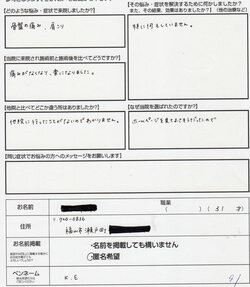 【どのような悩み・症状で来院しましたか?】
骨盤の痛み、肩こり
【その悩み・症状を解決するために何かしましたか?
また、その結果、効果はありましたか?】(他の治療など)
特に何もしていません。
【当院に来院され施術前と施術後を比べてどうですか?】
痛みがなくなり、楽になりました。
【他院と比べてどこか違う所はありましたか?】
他院に行ったことがないのでわかりません。
【なぜ当院を選ばれたのですか?】
ホームページを見てよさそうだったので
【同じ症状でお悩みの方へのメッセージをお願いします】
お名前
職業
( 51 才)
住所
〒720-0836
福山市瀬戸町
お名前掲載
・名前を掲載しても構いません
・匿名希望
ペンネーム
K.E